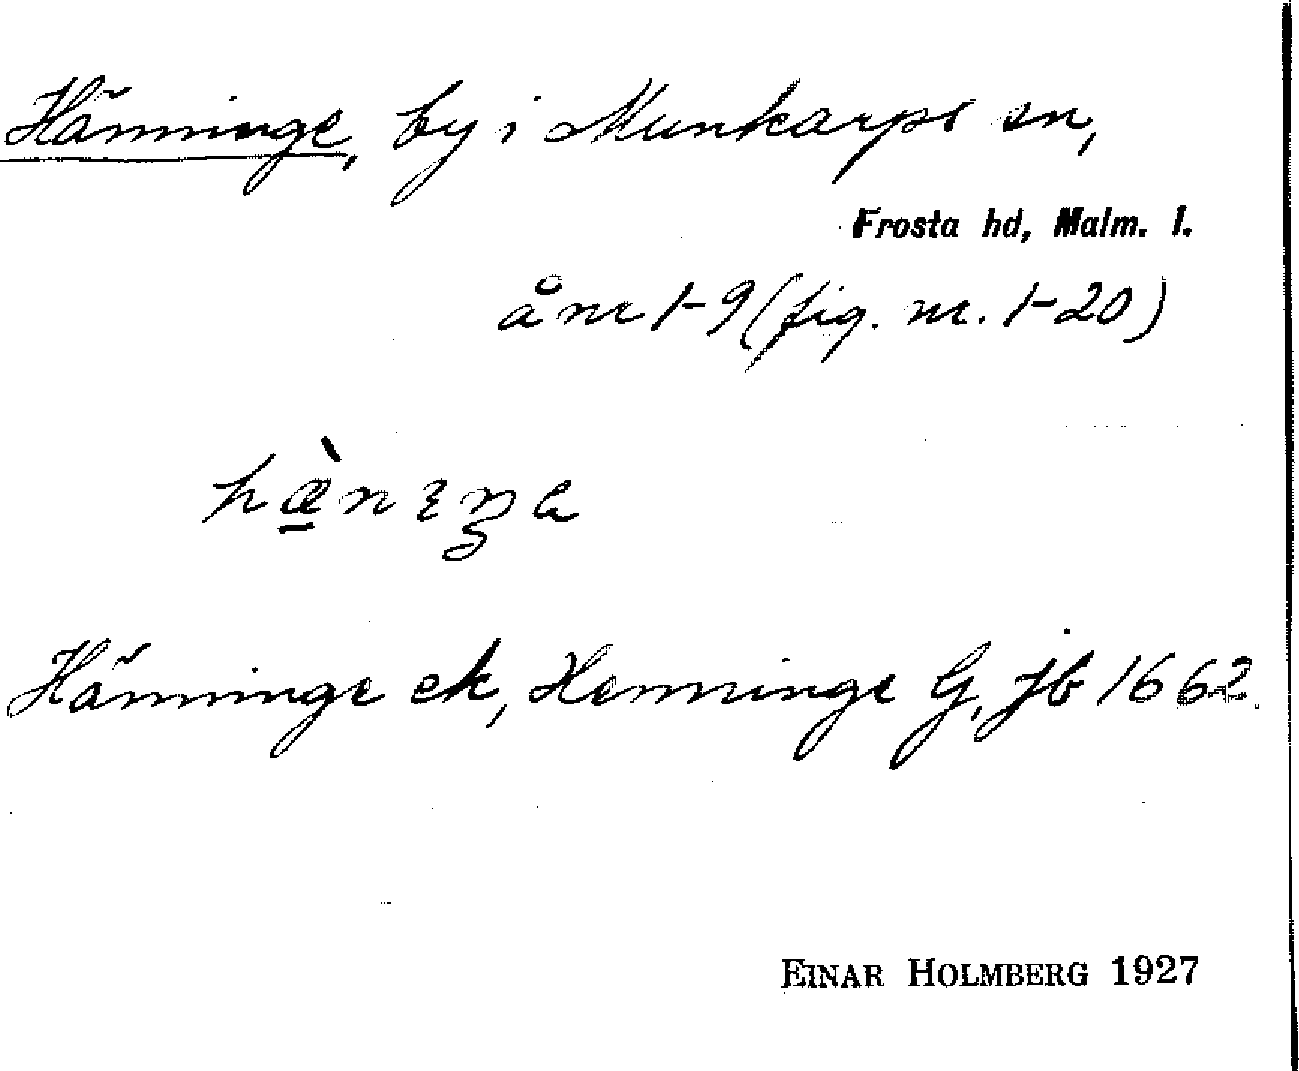 Hänninge, by i Munkarps sn,
Frosta hd, Malm. l.
å nr 1-9 (fig. nr. 1-20)
Hänninge ek, Henninge G, jb 1662.
EINAR HOLMBERG 1927